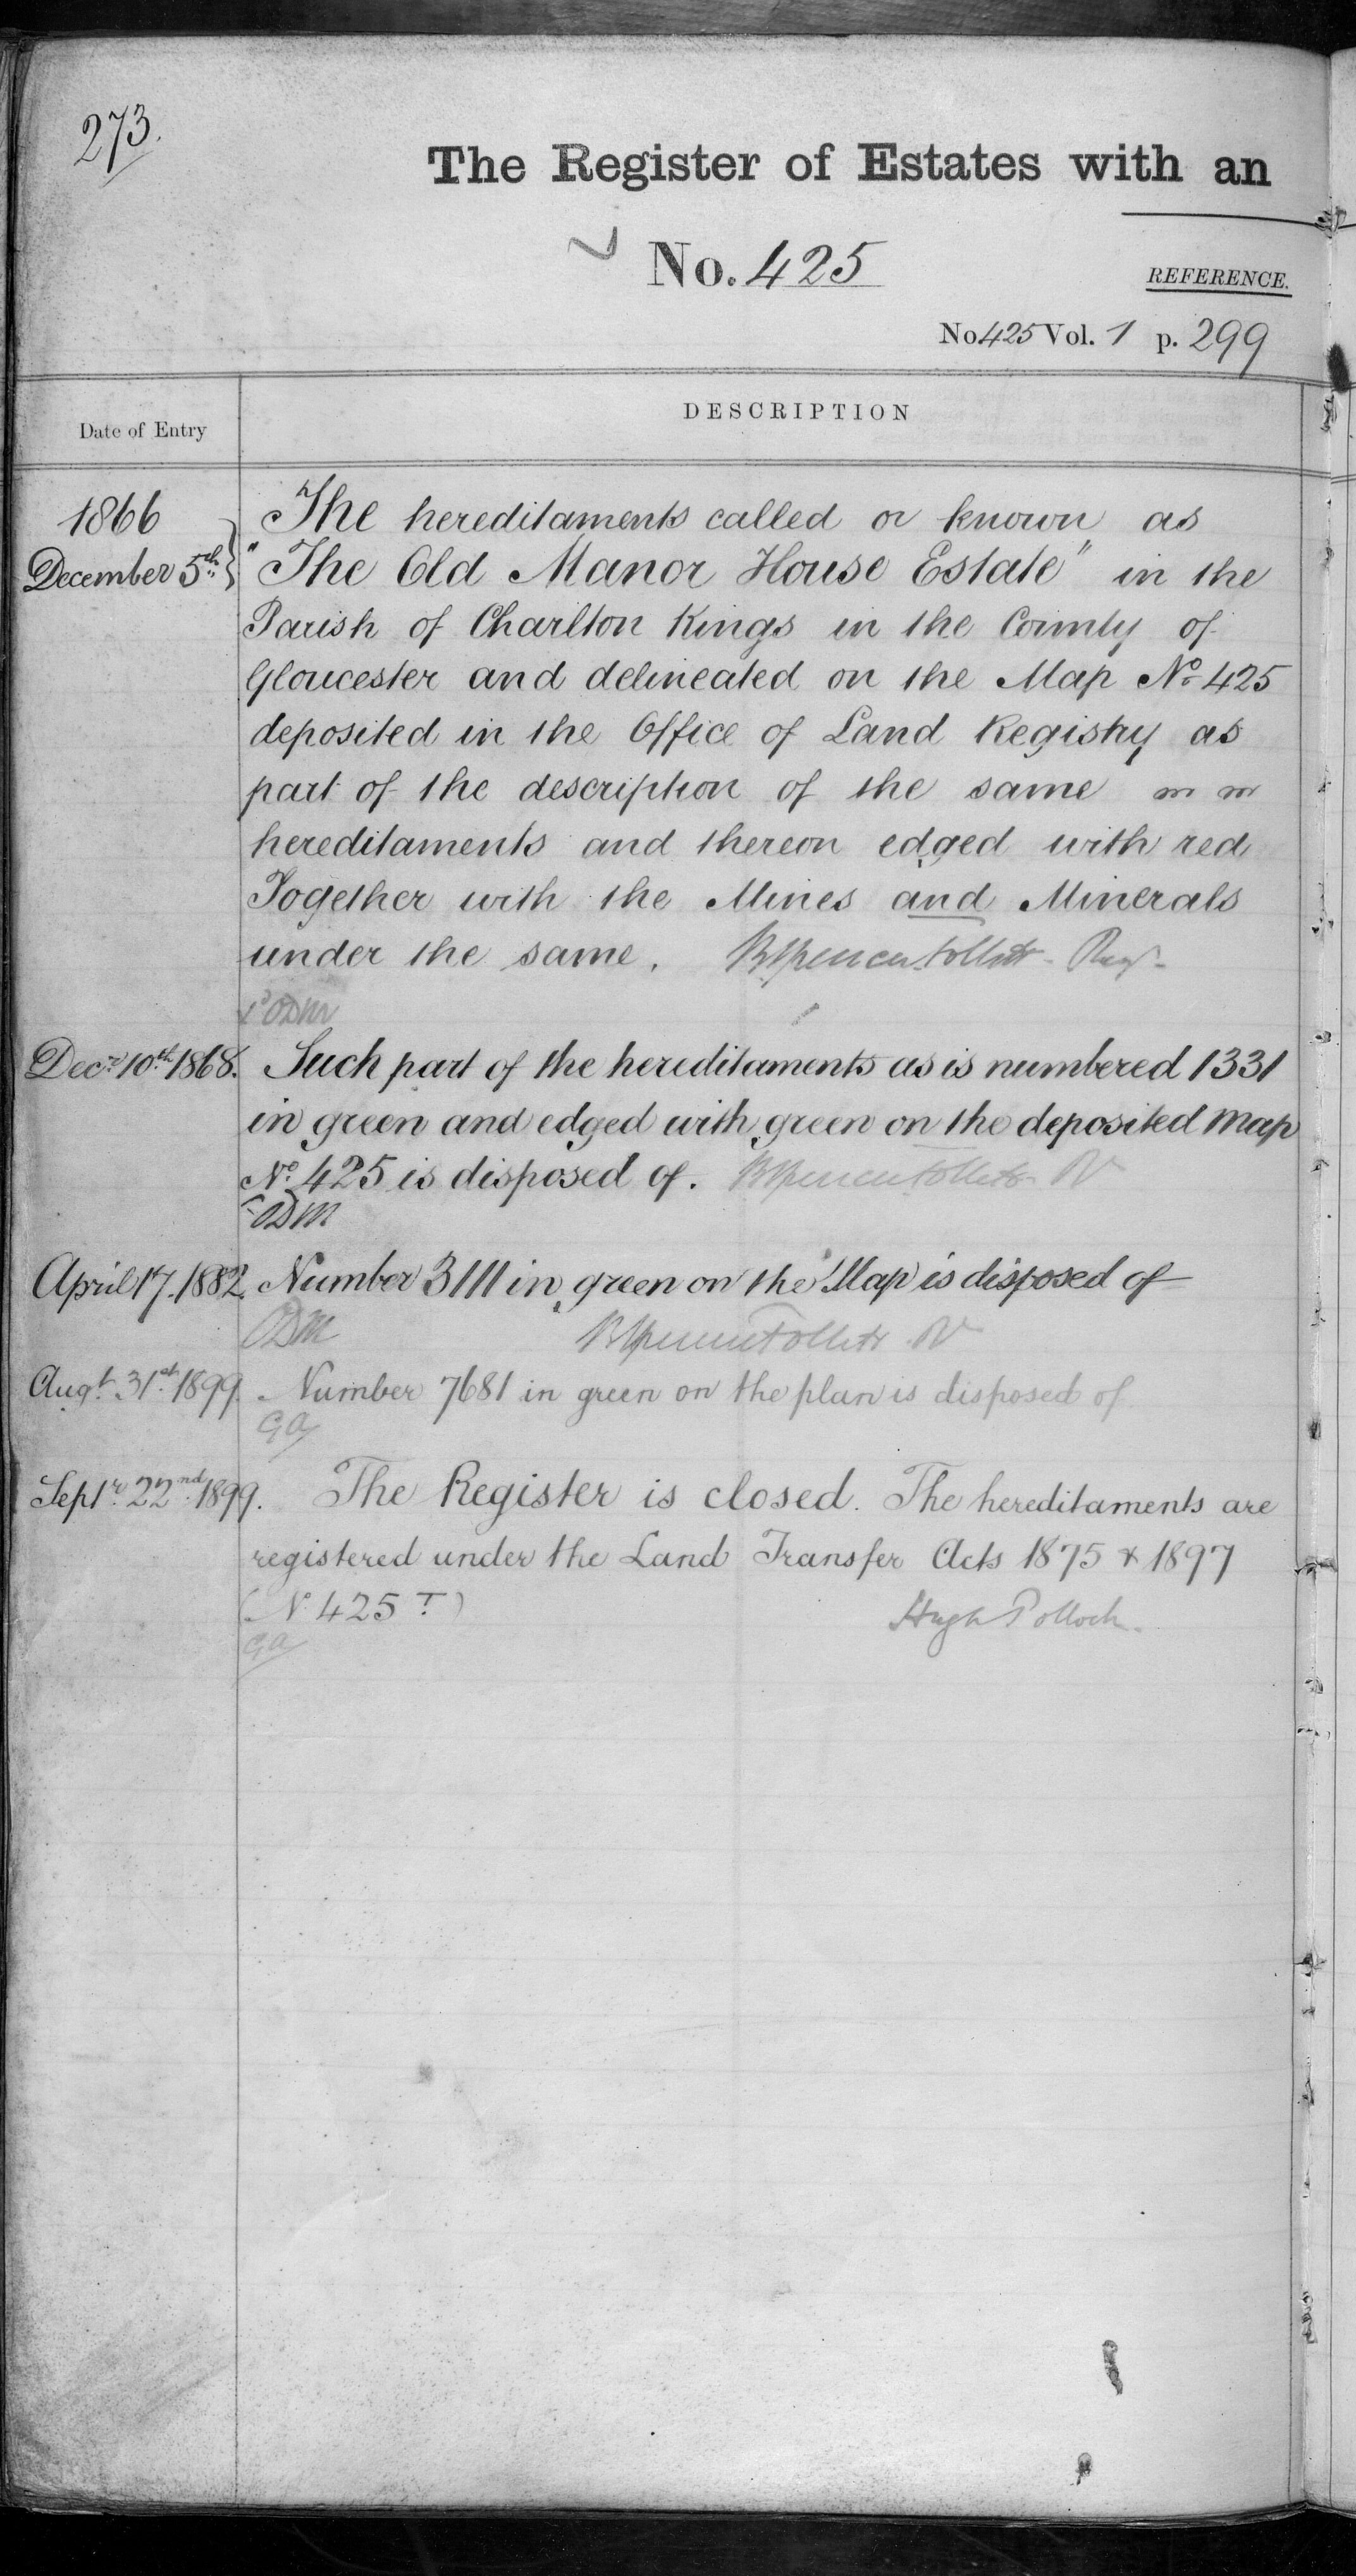 273.
The Register of Estates with an
No. 425
REFERENCE.
No 425 Vol. 1 p. 299
Date of Entry
DESCRIPTION
1866
December 5th
The hereditaments called or known as
"The Old Manor House Estate" in the
Parish of Charlton Kings in the County of
Gloucester and delineated on the Map No. 425
deposited in the Office of Land Registry as
part of the description of the same
hereditaments and thereon edged with red
Together with the Mines and Minerals
under the same. BSpencer Follett - Regr
ODM
Decr. 10th. 1868. Such part of the hereditaments as is numbered 1331
in green and edged with green on the deposited Map
No. 425 is disposed of. BSpencer Follett R
ODM
April 17. 1882. Number 3111 in green on the Map is disposed of
ODM BSpencer Follett R
Augt. 31st. 1899. Number 7681 in green on the plan is disposed of
GA
Septr. 22nd. 1899. The Register is closed. The hereditaments are
registered under the Land Transfer Acts 1875 & 1897
(No. 425 T)
Hugh Pollock.
GA